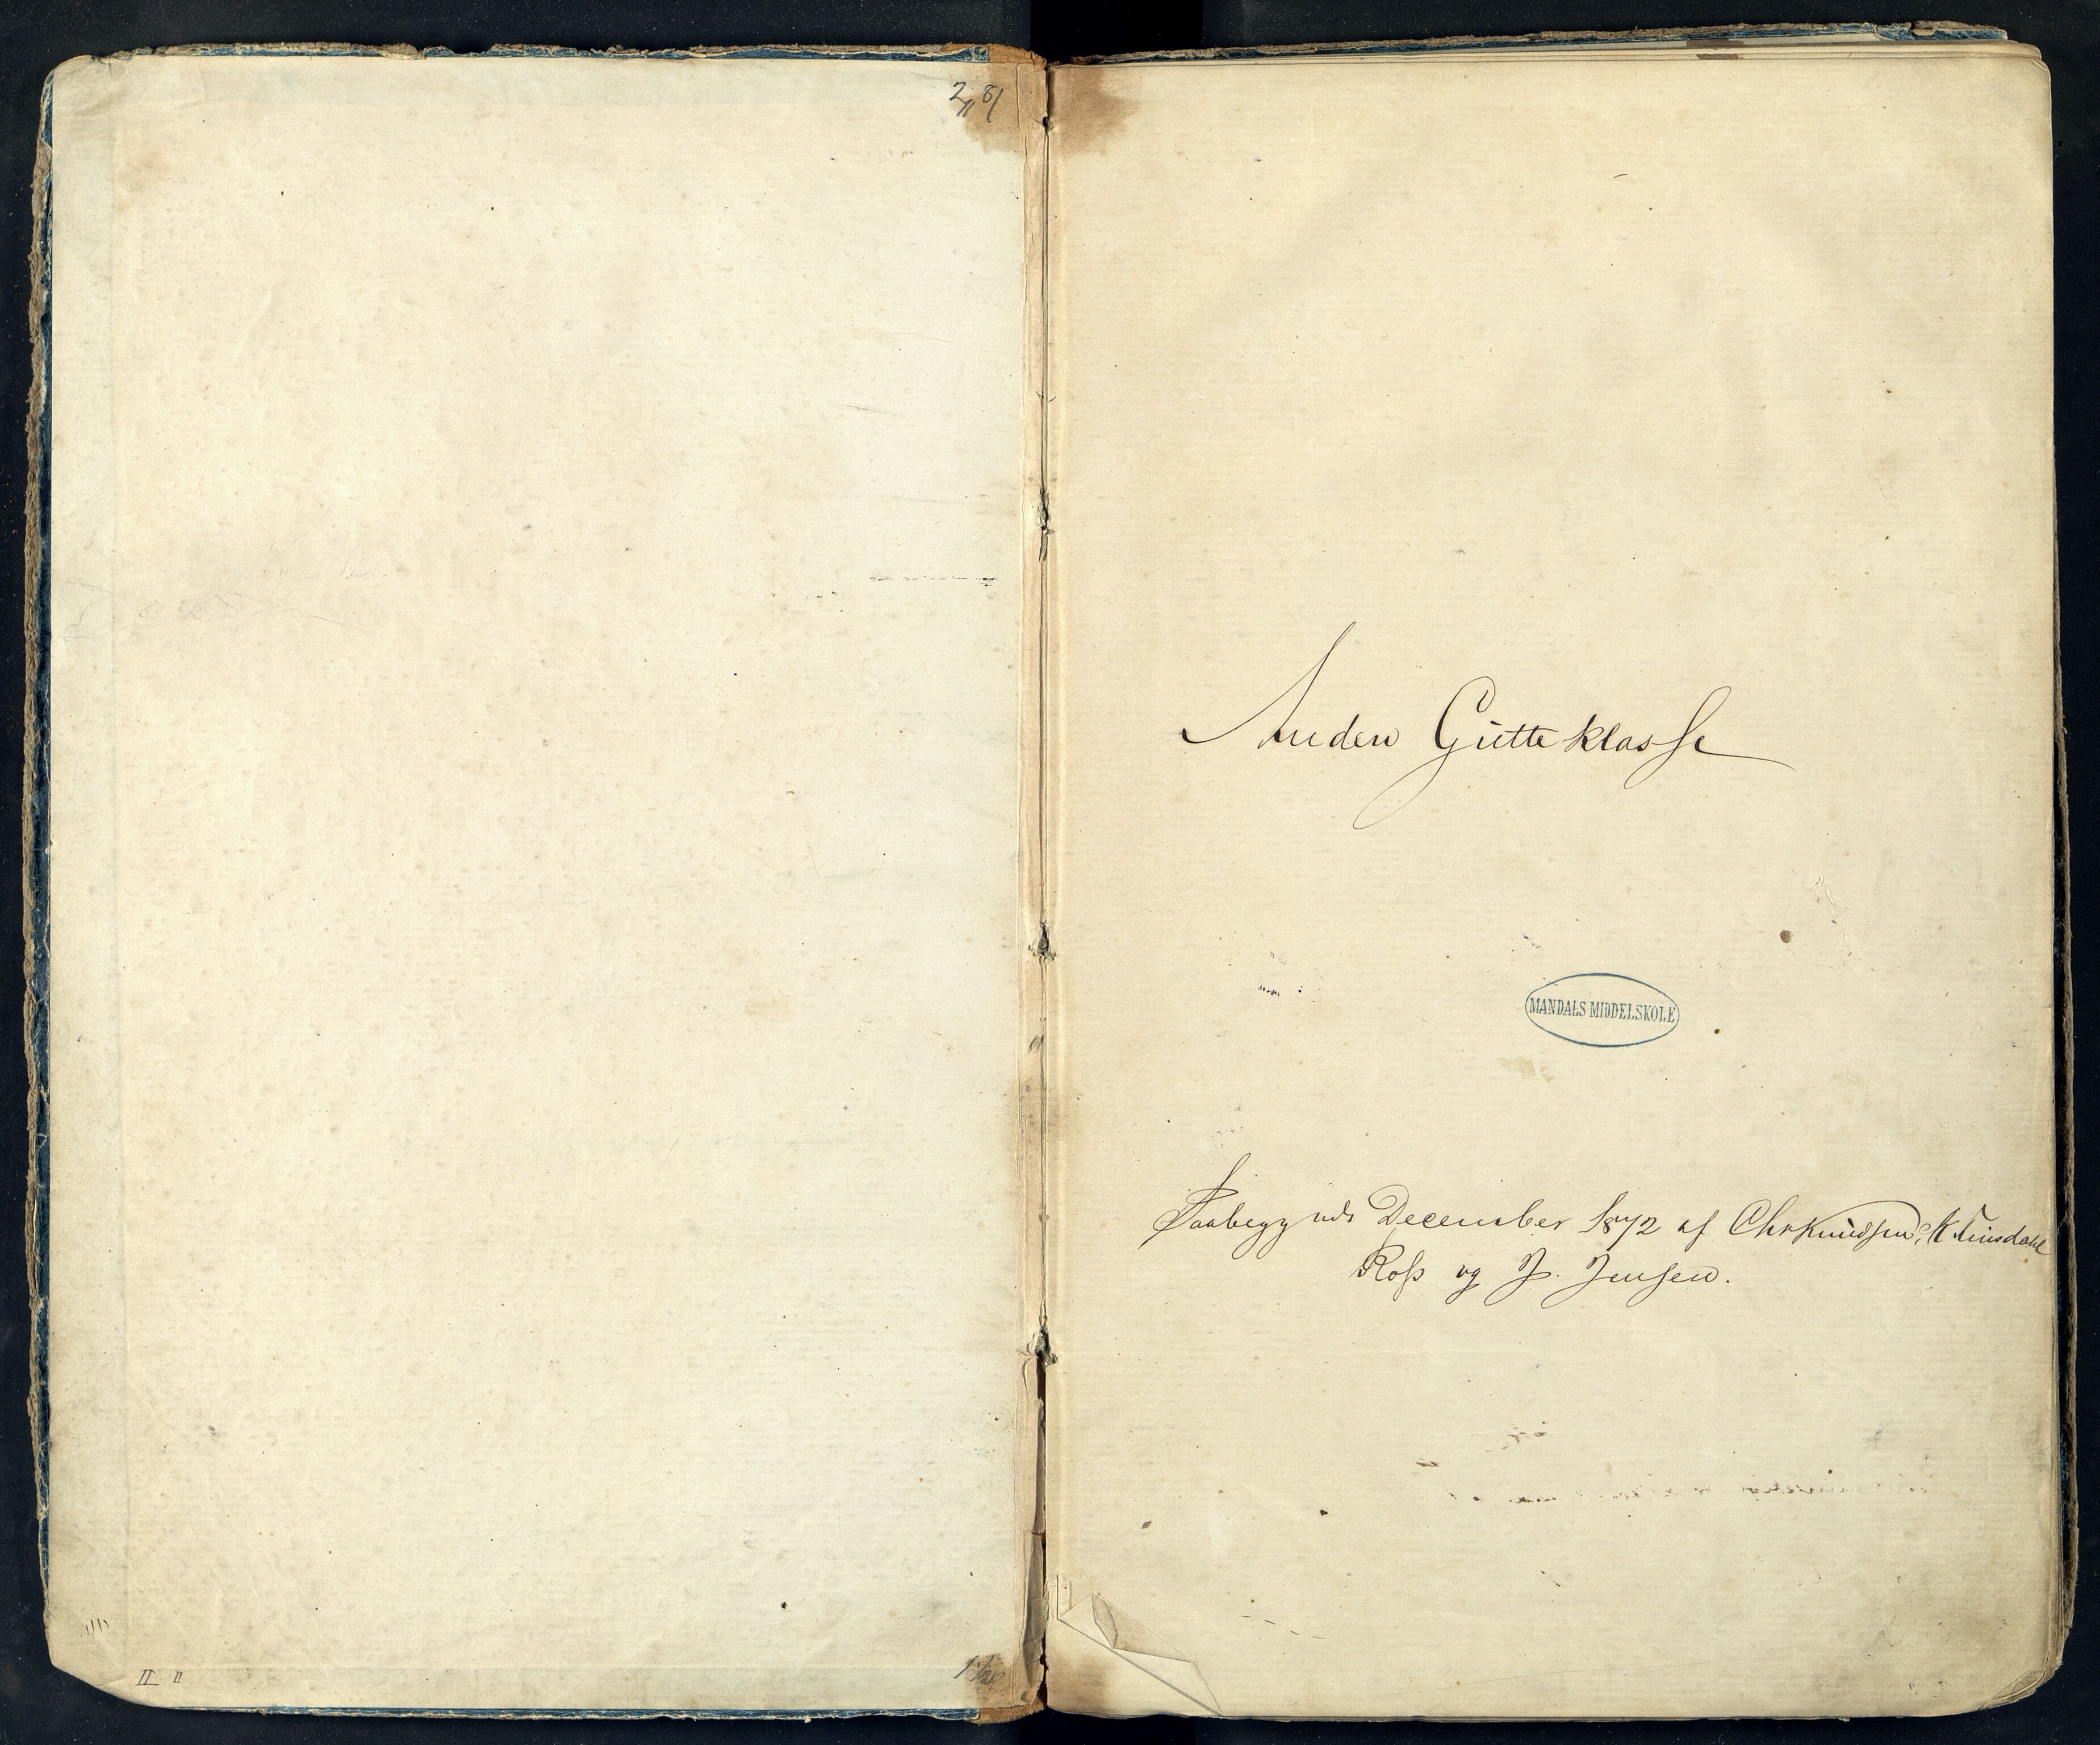 2/11 81
Anden Gutteklasse
MANDALS MIDDELSKOLE
Paabegyndt December 1872 af Chr Knudsen, K
Ross og J. Jensen.
II II